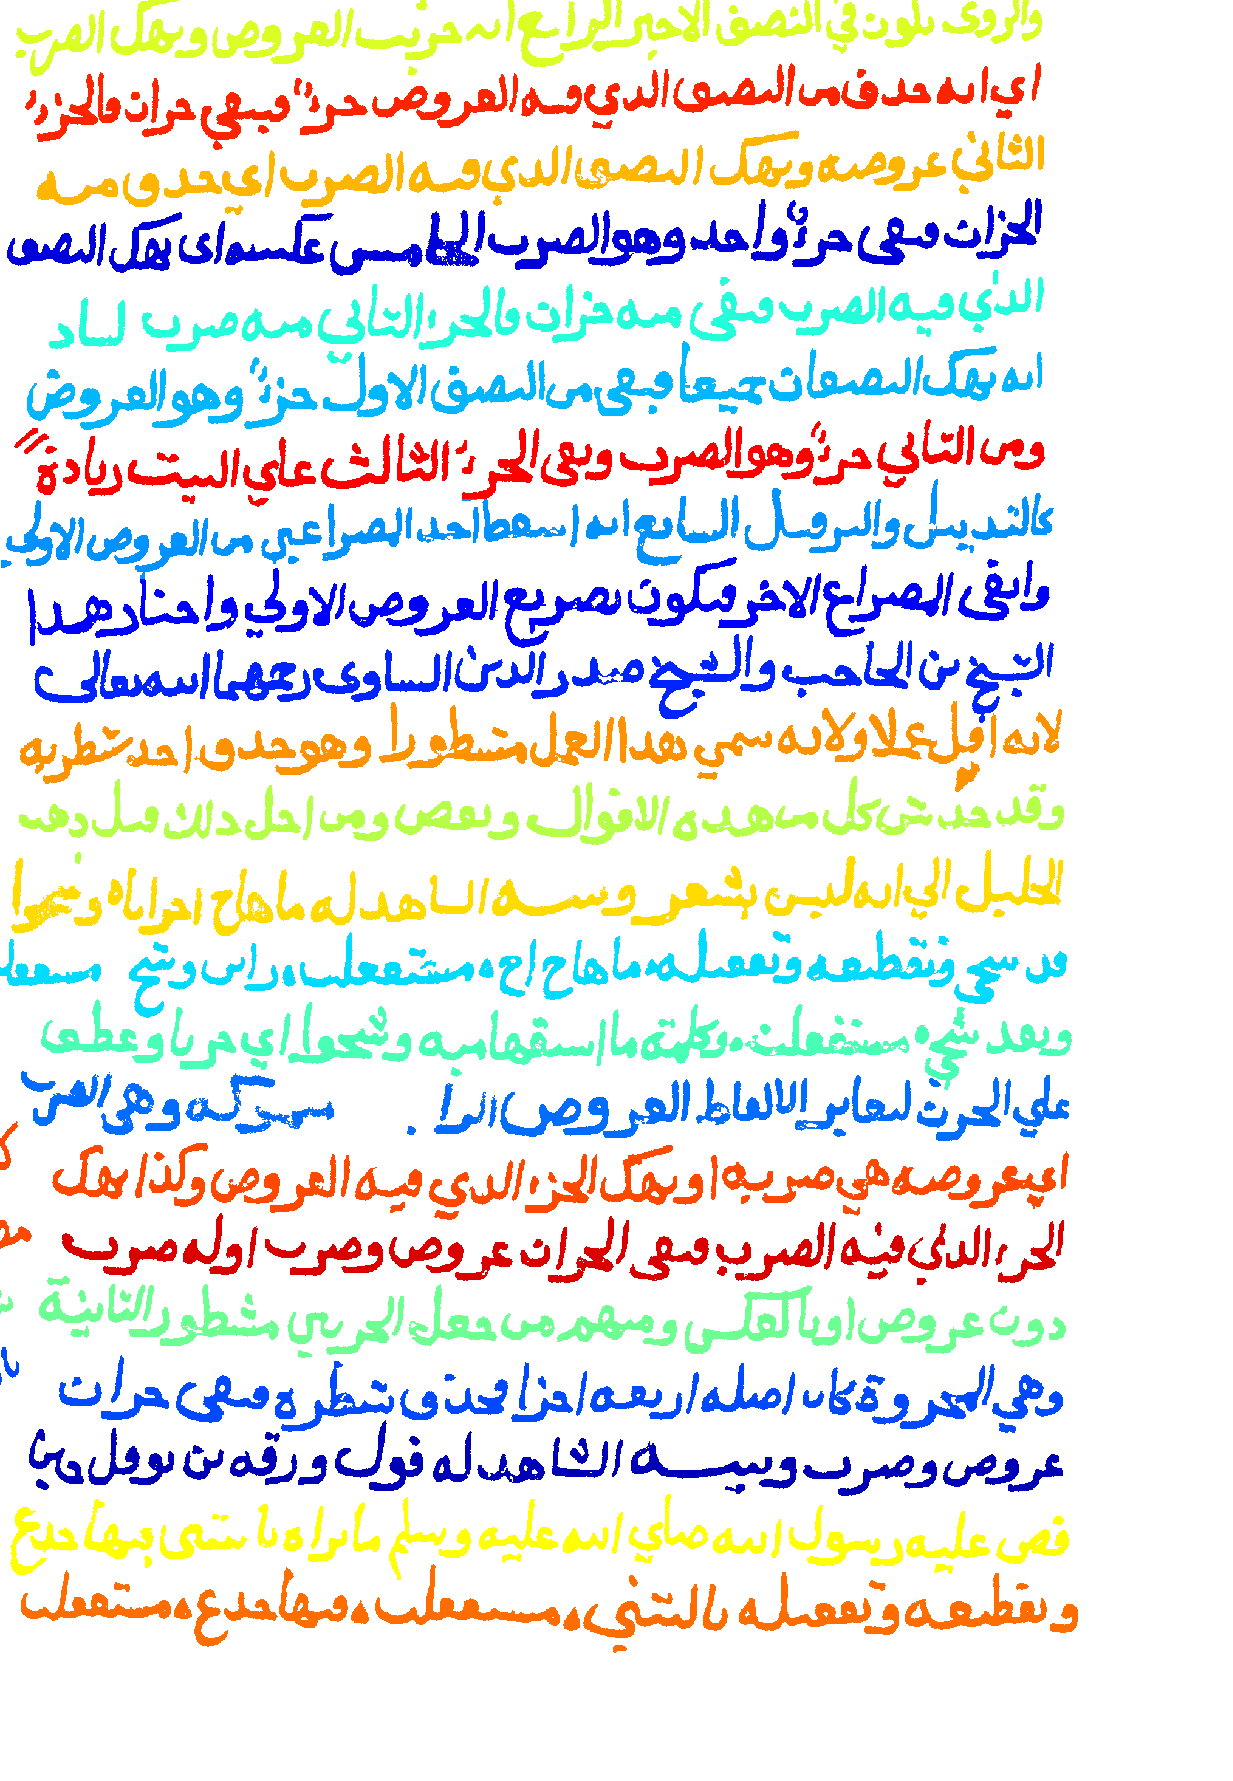 والروى يكون في النصف الاخير الرابع انه حريت العروض ونهك الضرب
اي انه حدف من النصف الدي فيه العروض حزء فيبقي حزان فالحزء
الثاني عروضه ونهك النصف الدي فيه الضرب اي حدف منه
الحزان فيبقى حزء واحد وهو الضرب الخامس عكسه اى نهك النصف
الدي فيه الضرب فيبقى منه حزان فالجزء الثاني منه ضرب
انه نهك النصفان جميعا فيبقى من النصف الاول حزء وهو العروض
ومن الثاني حزء وهو الضرب وبقى الجزء الثالث علي البيت زيادة
كالتدييل والترفيل السابع انه اسقط احد المصراعين من العروض الاولي
وابقى المصراع الاخر فيكون تصريع العروض الاولي واختار هدا
الشيخ بن الحاجب والشيخ صدر الدين الساوى رحمهما الله تعالى
لانه اقل عملا ولانه سمي هدا العمل مشطورا وهو حدف احد شطريه
وقد حدش كل من هده الاقوال ونقض ومن اجل دلك قيل دهب
الخليل الي انه ليس بشعر وبيته الشاهد له ما هاج احزانا وشجوا
قد شجي وتقطيعه وتفعيله ما هاج اح مستفعلن زان وشج مستفعلن
وبقد شجى مستفعلن وكلمة ما استفهاميه وشجوا اي حزنا وعطف
علي الحزن لتغاير الالفاظ العروض الرا وهى الضرب
اي عروضه هي ضربه او نهك الجزء الدي فيه العروض وكذا نهك
الجزء الدي فيه الضرب فيبقى الجزان عروض وضرب اوله ضرب
دون عروض او بالعكس ومنهم من جعل الجزءين مشطور الثانية
وهي المجزوة كان اصله اربعه اجزا فحذف شطره فيبقى جزان
عروض وضرب وبيته الشاهد له قول ورقه بن نوفل حين
قص عليه رسول الله صلي الله عليه وسلم ما يراه يا ليتنى فيها جدع
وتقطيعه وتفعيله يا ليتني مستفعلن فيها جدع مستفعلن